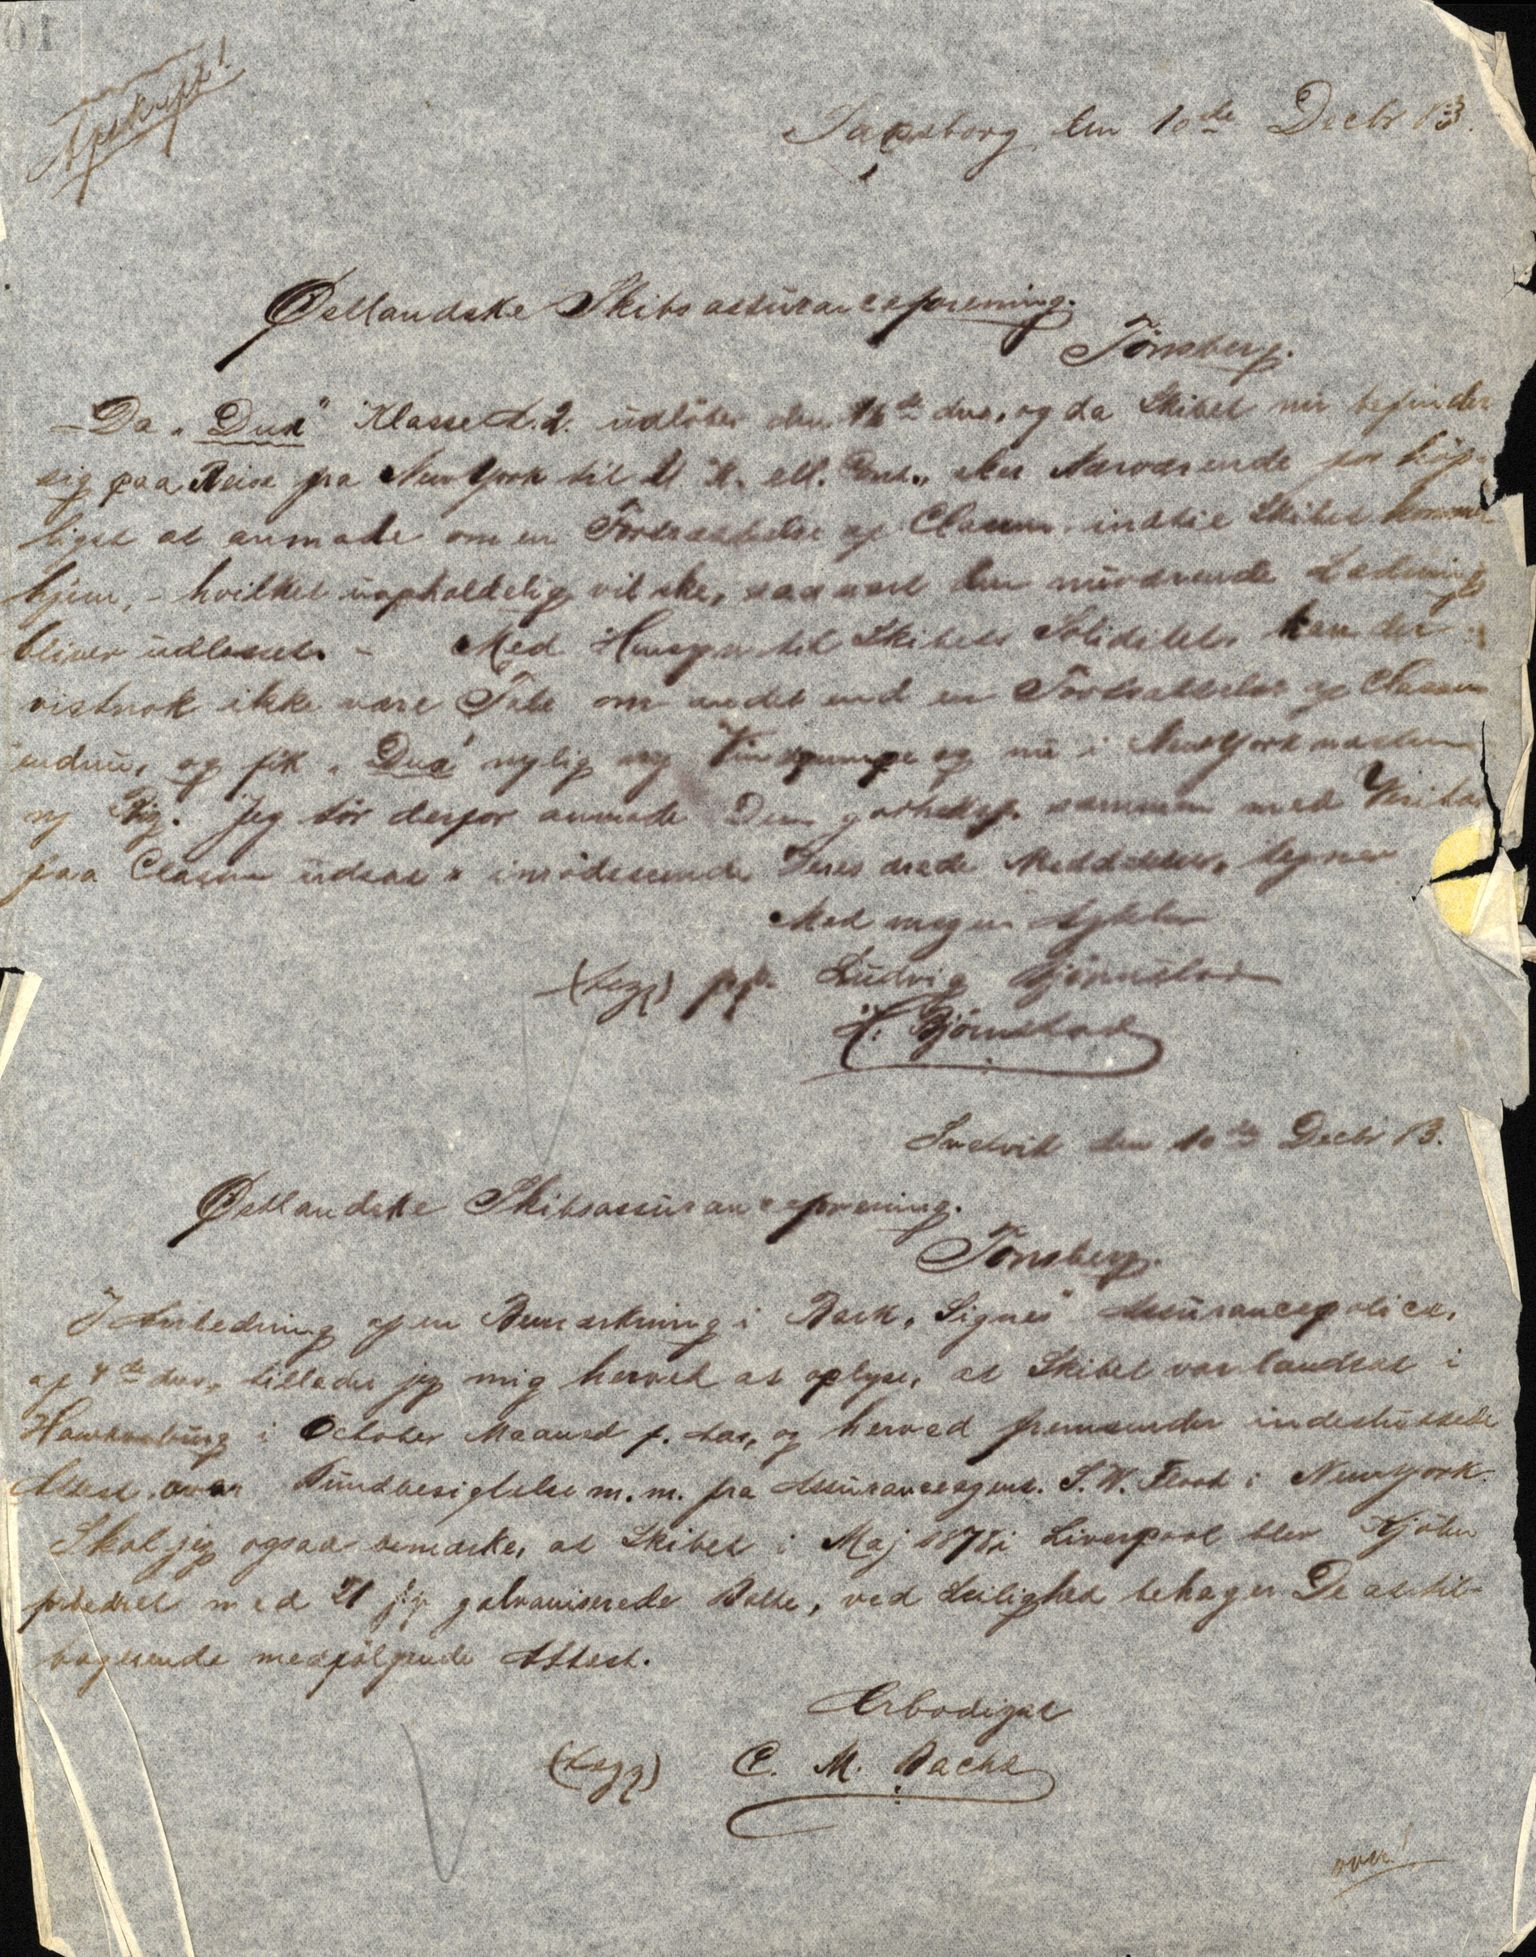 Afskrift!
Sarpsborg den 10de Decbr 83.
Østlandske Skibsassuranceforening.
Tönsberg.
Da "Dux" Klasse A.2. udlöber den 16de ds., og da Skibet nu befinder
sig paa Reise fra New York til U.K. ell. Cont., sker Nærværende for höf-
ligst at anmode om en Fortsættelse af Classen indtil Skibet kommer
hjem, - hvilket uopholdelig vil ske, saasnart den nuværende Ladning
bliver udlosset. - Med Hensyn til Skibets Soliditet kan der
vistnok ikke være Tale om andet end en Fortsættelse af Classen
endnu, og fik "Dux" nylig ny Vindpumpe og nu i New York næsten
ny Rig. Jeg tör derfor anmode Dem godhedsf. sammen med Veritas
paa Classen udsat & imödeseende Deres ærede Meddelelse, tegner
Med megen Agtelse
(tegn) pp. Ludvig Bjørnstad
H. Bjørnstad
den 10de Decbr 83.
Østlandske Skibsassuranceforening.
Tönsberg.
I Anledning af en Bemærkning i Bark "Signes" Assurancepolice,
af 4de ds., tillader jeg mig herved at oplyse, at Skibet var landsat i
i October Maaned f. Aar, og herved fremsender indesluttede
Attest over Bundbesigtelse m.m. fra Assuranceagent S. W. Flood i New York.
Skal jeg ogsaa bemærke, at Skibet i Maj 1878 i Liverpool blev Kjølen
forbedret med 21 galvaniserede Bolte, ved Leilighed behager De at til-
bagesende medfölgende Attest.
Ærbödigst
(tegn) C. M. Bache
over!